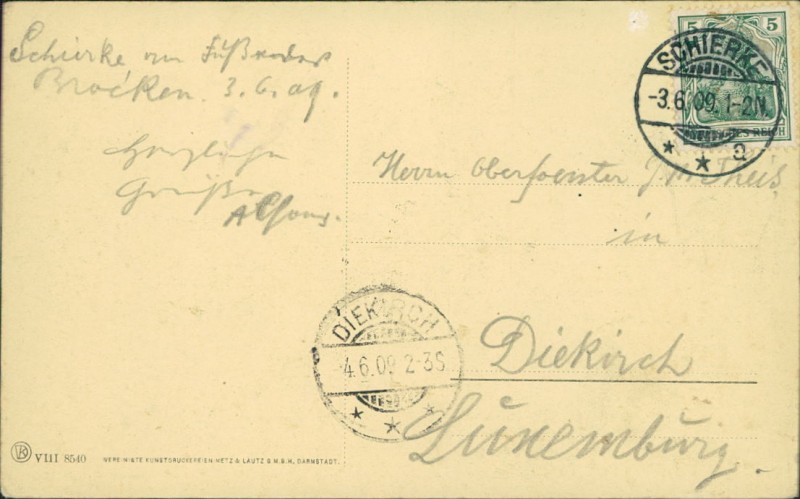 Schierke am Fuße des
Brocken. 3.6.09.
Herzliche
Grüße
Alfons.
5 5
SCHIERKE
-3.6.09.1-2N.
* * a
REICH
Herrn Oberfoerster J. M. Theis.
in
Diekirch
Luxemburg.
DIEKIRCH
-4.6.09 2-3S
* * *
VK VIII 8540 VEREINIGTE KUNSTDRUCKEREIEN METZ & LAUTZ G.M.B.H. DARMSTADT.